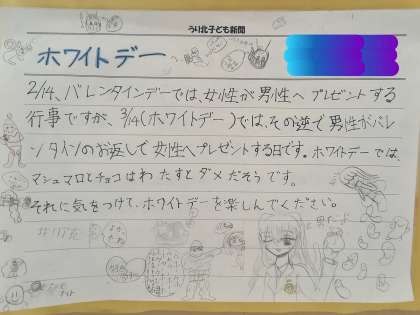 うり北子ども新聞
ホワイトデー
2/14、バレンタインデーでは、女性が男性へプレゼントする
行事ですが、3/14(ホワイトデー)では、その逆で男性がバレ
ンタインのお返しで女性へプレゼントする日です。ホワイトデーでは、
マシュマロとチョコはわたすとダメだそうです。
それに気をつけて、ホワイトデーを楽しんでください。